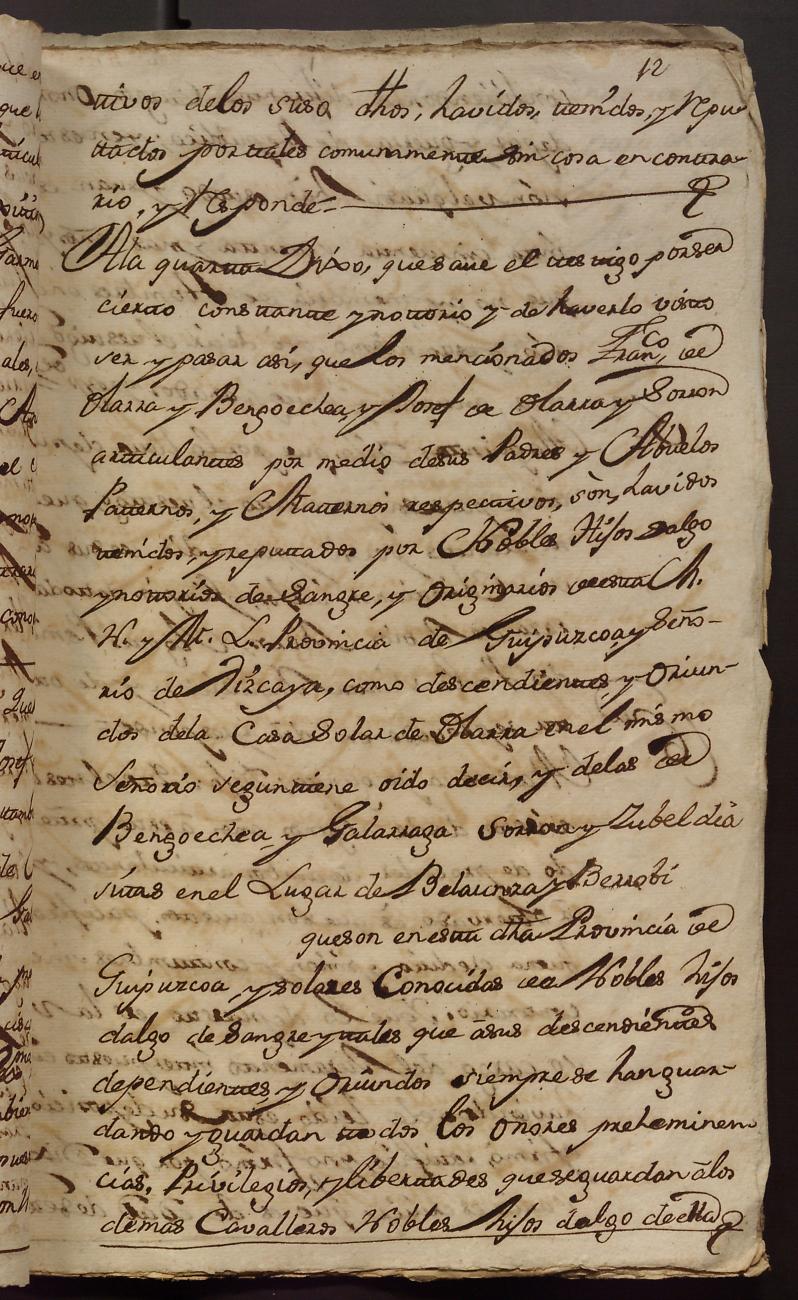 12
tivos delos suso dhos; havidos, tenidos, y repu
tados por tales comunmente sin cosa en contra-
rio, y responde=
Ala quarta Dixo, que save el testigo por ser
cierto constante y nottorio y de haverlo visto
ver y pasar asi, que los mencionados Franco de
Olarra y Bengoechea, y Josef de Olarra y Sorron
articulantes por medio desus Padres y Abuelos
Patternos, y Matternos respectivos, son, havidos
tenidos, y reputtados por Nobles Hijos dalgo
y nottorios de Sangre, y Originarios de esta M.
N. y M. L. Provincia de Guipuzcoa, y Seño-
rio de Vizcaya, como descendientes, y Oriun-
dos dela Casa Solar de Olarra en el mismo
Señorio segun tiene oido decir, y delas de
Bengoechea, y Galarraga y Zubeldia
sitas en el Lugar de Belaunza y Berrobi
que son en esta dha Provincia de
Guipuzcoa, y solares Conocidas de Nobles hijos
dalgo de Sangre y tales que asus descendientes
dependientes y Oriundos siempre se han guar-
dando y guardan todos los onores preheminen
cias, Privilegios, y libertades que se guardan alos
demas Cavalleros Nobles hijos dalgo de ella